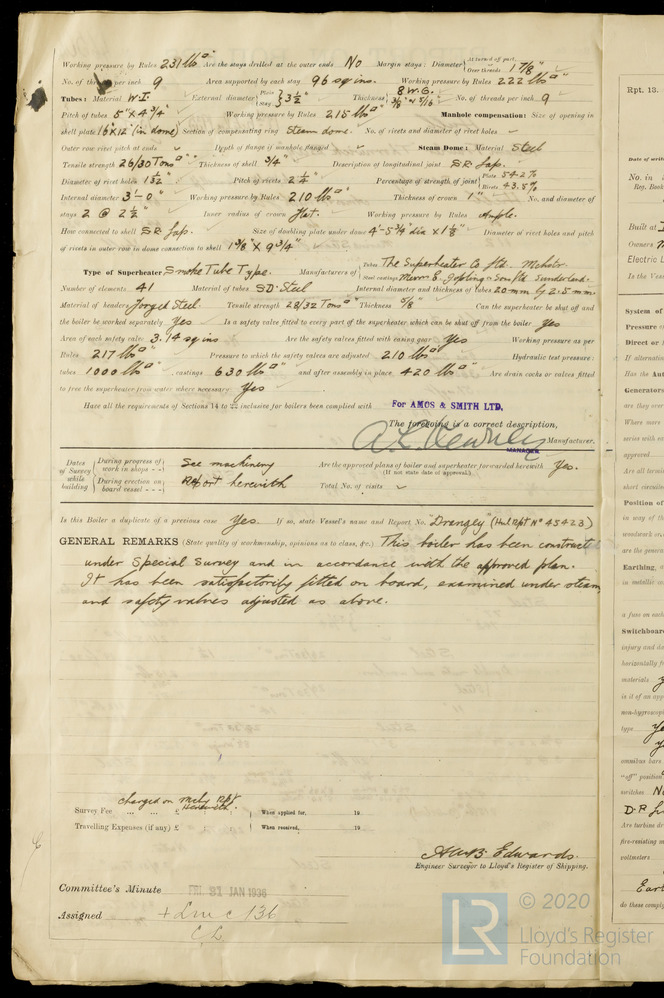 Working pressure by Rules 231 lbs□" Are the stays drilled at the outer ends No Margin stays: Diameter { At turned off part, or Over threads 1 7/8"
No. of threads per inch 9 Area supported by each stay 96 sq ins. Working pressure by Rules 222 lbs□"
Tubes: Material W.I. External diameter { Plain Stay } 3 1/2" Thickness { 8 W.G. 3/8" & 5/16" No. of threads per inch 9
Pitch of tubes 5" x 4 3/4" Working pressure by Rules 215 lbs□" Manhole compensation: Size of opening in
shell plate 16"x12" (in dome) Section of compensating ring Steam dome. No. of rivets and diameter of rivet holes
Outer row rivet pitch at ends Depth of flange if manhole flanged Steam Dome: Material Steel
Tensile strength 26/30 Tons□" Thickness of shell 3/4" Description of longitudinal joint S.R. Lap.
Diameter of rivet holes 1 1/32" Pitch of rivets 2 1/4" Percentage of strength of joint { Plate 54.2% Rivets 43.8%
Internal diameter 3'-0" Working pressure by Rules 210 lbs□" Thickness of crown 1" No. and diameter of
stays 2 @ 2 1/2" Inner radius of crown Flat. Working pressure by Rules Ample.
How connected to shell S.R. Lap. Size of doubling plate under dome 4'-5 3/4" dia x 1 1/8" Diameter of rivet holes and pitch
of rivets in outer row in dome connection to shell 1 3/8" x 9 3/4"
Type of Superheater Smoke Tube Type. Manufacturers of { Tubes The Superheater Co Ltd. Mchstr. Steel castings Messrs E. Jopling & Sons Ltd Sunderland.
Number of elements 41 Material of tubes S.D. Steel Internal diameter and thickness of tubes 20 mm by 2.5 mm
Material of headers Forged Steel. Tensile strength 28/32 Tons□" Thickness 5/8" Can the superheater be shut off and
the boiler be worked separately Yes Is a safety valve fitted to every part of the superheater which can be shut off from the boiler Yes
Area of each safety valve 3.14 sq ins Are the safety valves fitted with easing gear Yes Working pressure as per
Rules 217 lbs□" Pressure to which the safety valves are adjusted 210 lbs□" Hydraulic test pressure:
tubes 1000 lbs□", castings 630 lbs□" and after assembly in place 420 lbs□" Are drain cocks or valves fitted
to free the superheater from water where necessary Yes
Have all the requirements of Sections 14 to 22 inclusive for boilers been complied with For AMOS & SMITH LTD.
The foregoing is a correct description,
Manufacturer.
MANAGER
Dates of Survey while building { During progress of work in shops - - } See machinery Are the approved plans of boiler and superheater forwarded herewith Yes.
(If not state date of approval.)
{ During erection on board vessel - - - } Report herewith Total No. of visits
Is this Boiler a duplicate of a previous case Yes. If so, state Vessel's name and Report No. "Drangey" (Hul Rpt No 45423)
GENERAL REMARKS (State quality of workmanship, opinions as to class, &c.) This boiler has been constructed
under Special Survey and in accordance with the approved plan.
It has been satisfactorily fitted on board, examined under steam,
and safety valves adjusted as above.
Survey Fee ... ... £ Charged on Mchy Rpt Herewith. When applied for, 19
Travelling Expenses (if any) £ When received, 19
A.W.B. Edwards.
Engineer Surveyor to Lloyd's Register of Shipping.
Committee's Minute FRI 31 JAN 1936
Assigned + LMC 1.36
CL
Rpt. 13.
Date of writ
No. in
Reg. Book
Built at
Owners
Electric L
Is the Vess
System of
Pressure o
Direct or A
If alternatin
Has the Aut
Generators
are they over
Where more
series with ea
approved
Are all termin
short circuitin
Position of
in way of th
woodwork or
are the genera
Earthing,
in metallic co
a fuse on each
Switchboard
injury and da
horizontally fr
materials
is it of an app
non-hygroscopi
type Ye
omnibus bars
"off" position
switches No
Are turbine dr
fire-resisting in
voltmeters
Eart
do these comply
LR
© 2020
Lloyd's Register
Foundation